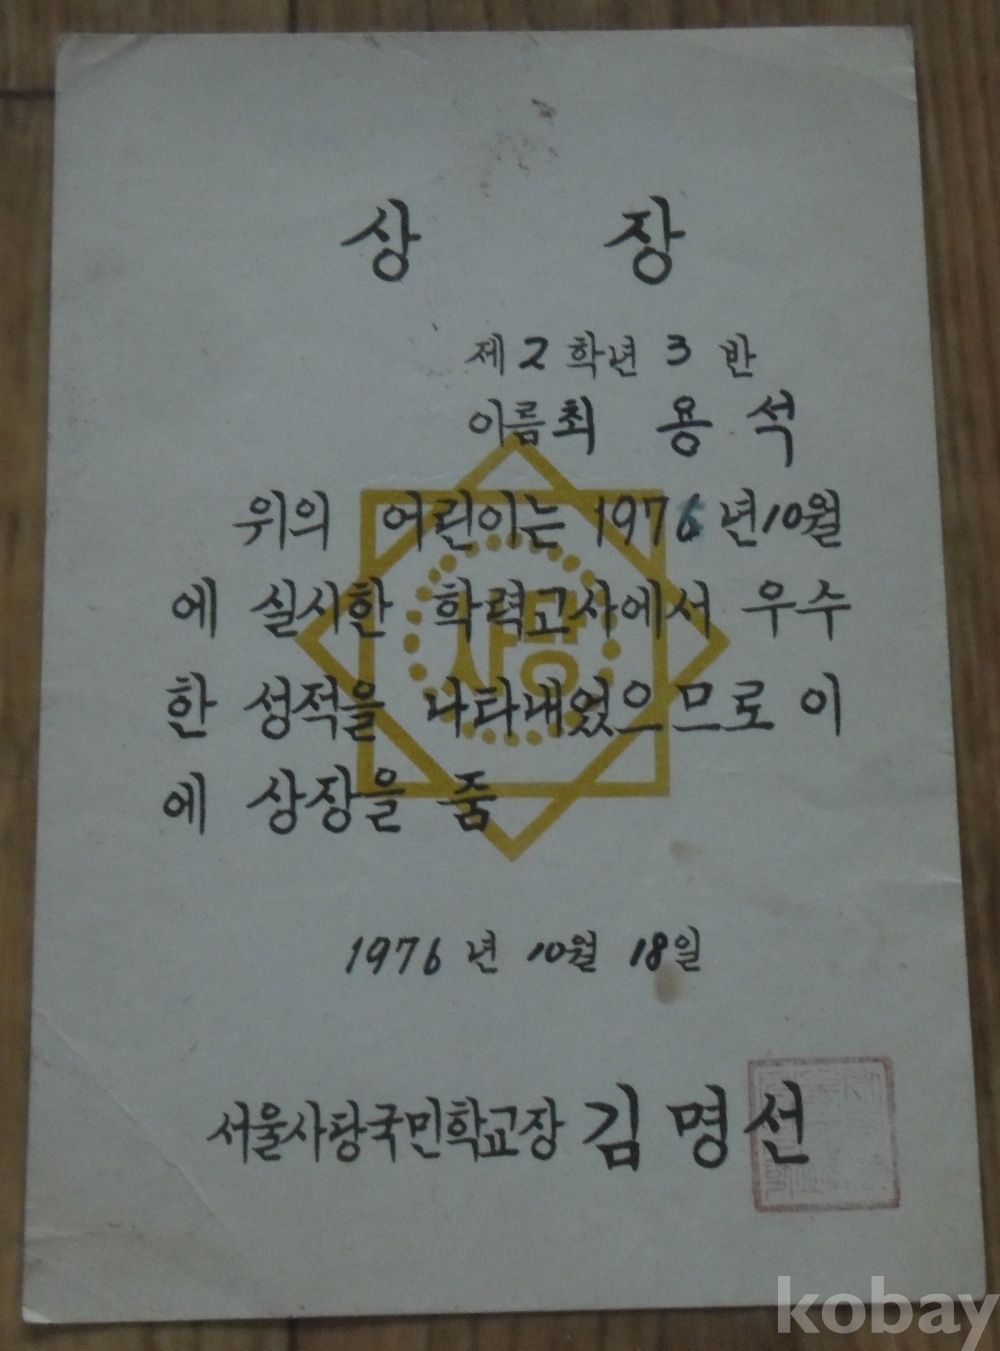 상 장
제 2 학년 3 반
이름 최 용 석
위의 어린이는 1976년 10월
에 실시한 학력고사에서 우수
한 성적을 나타내었으므로 이
에 상장을 줌
1976년 10월 18일
서울사당국민학교장 김명선
kobay